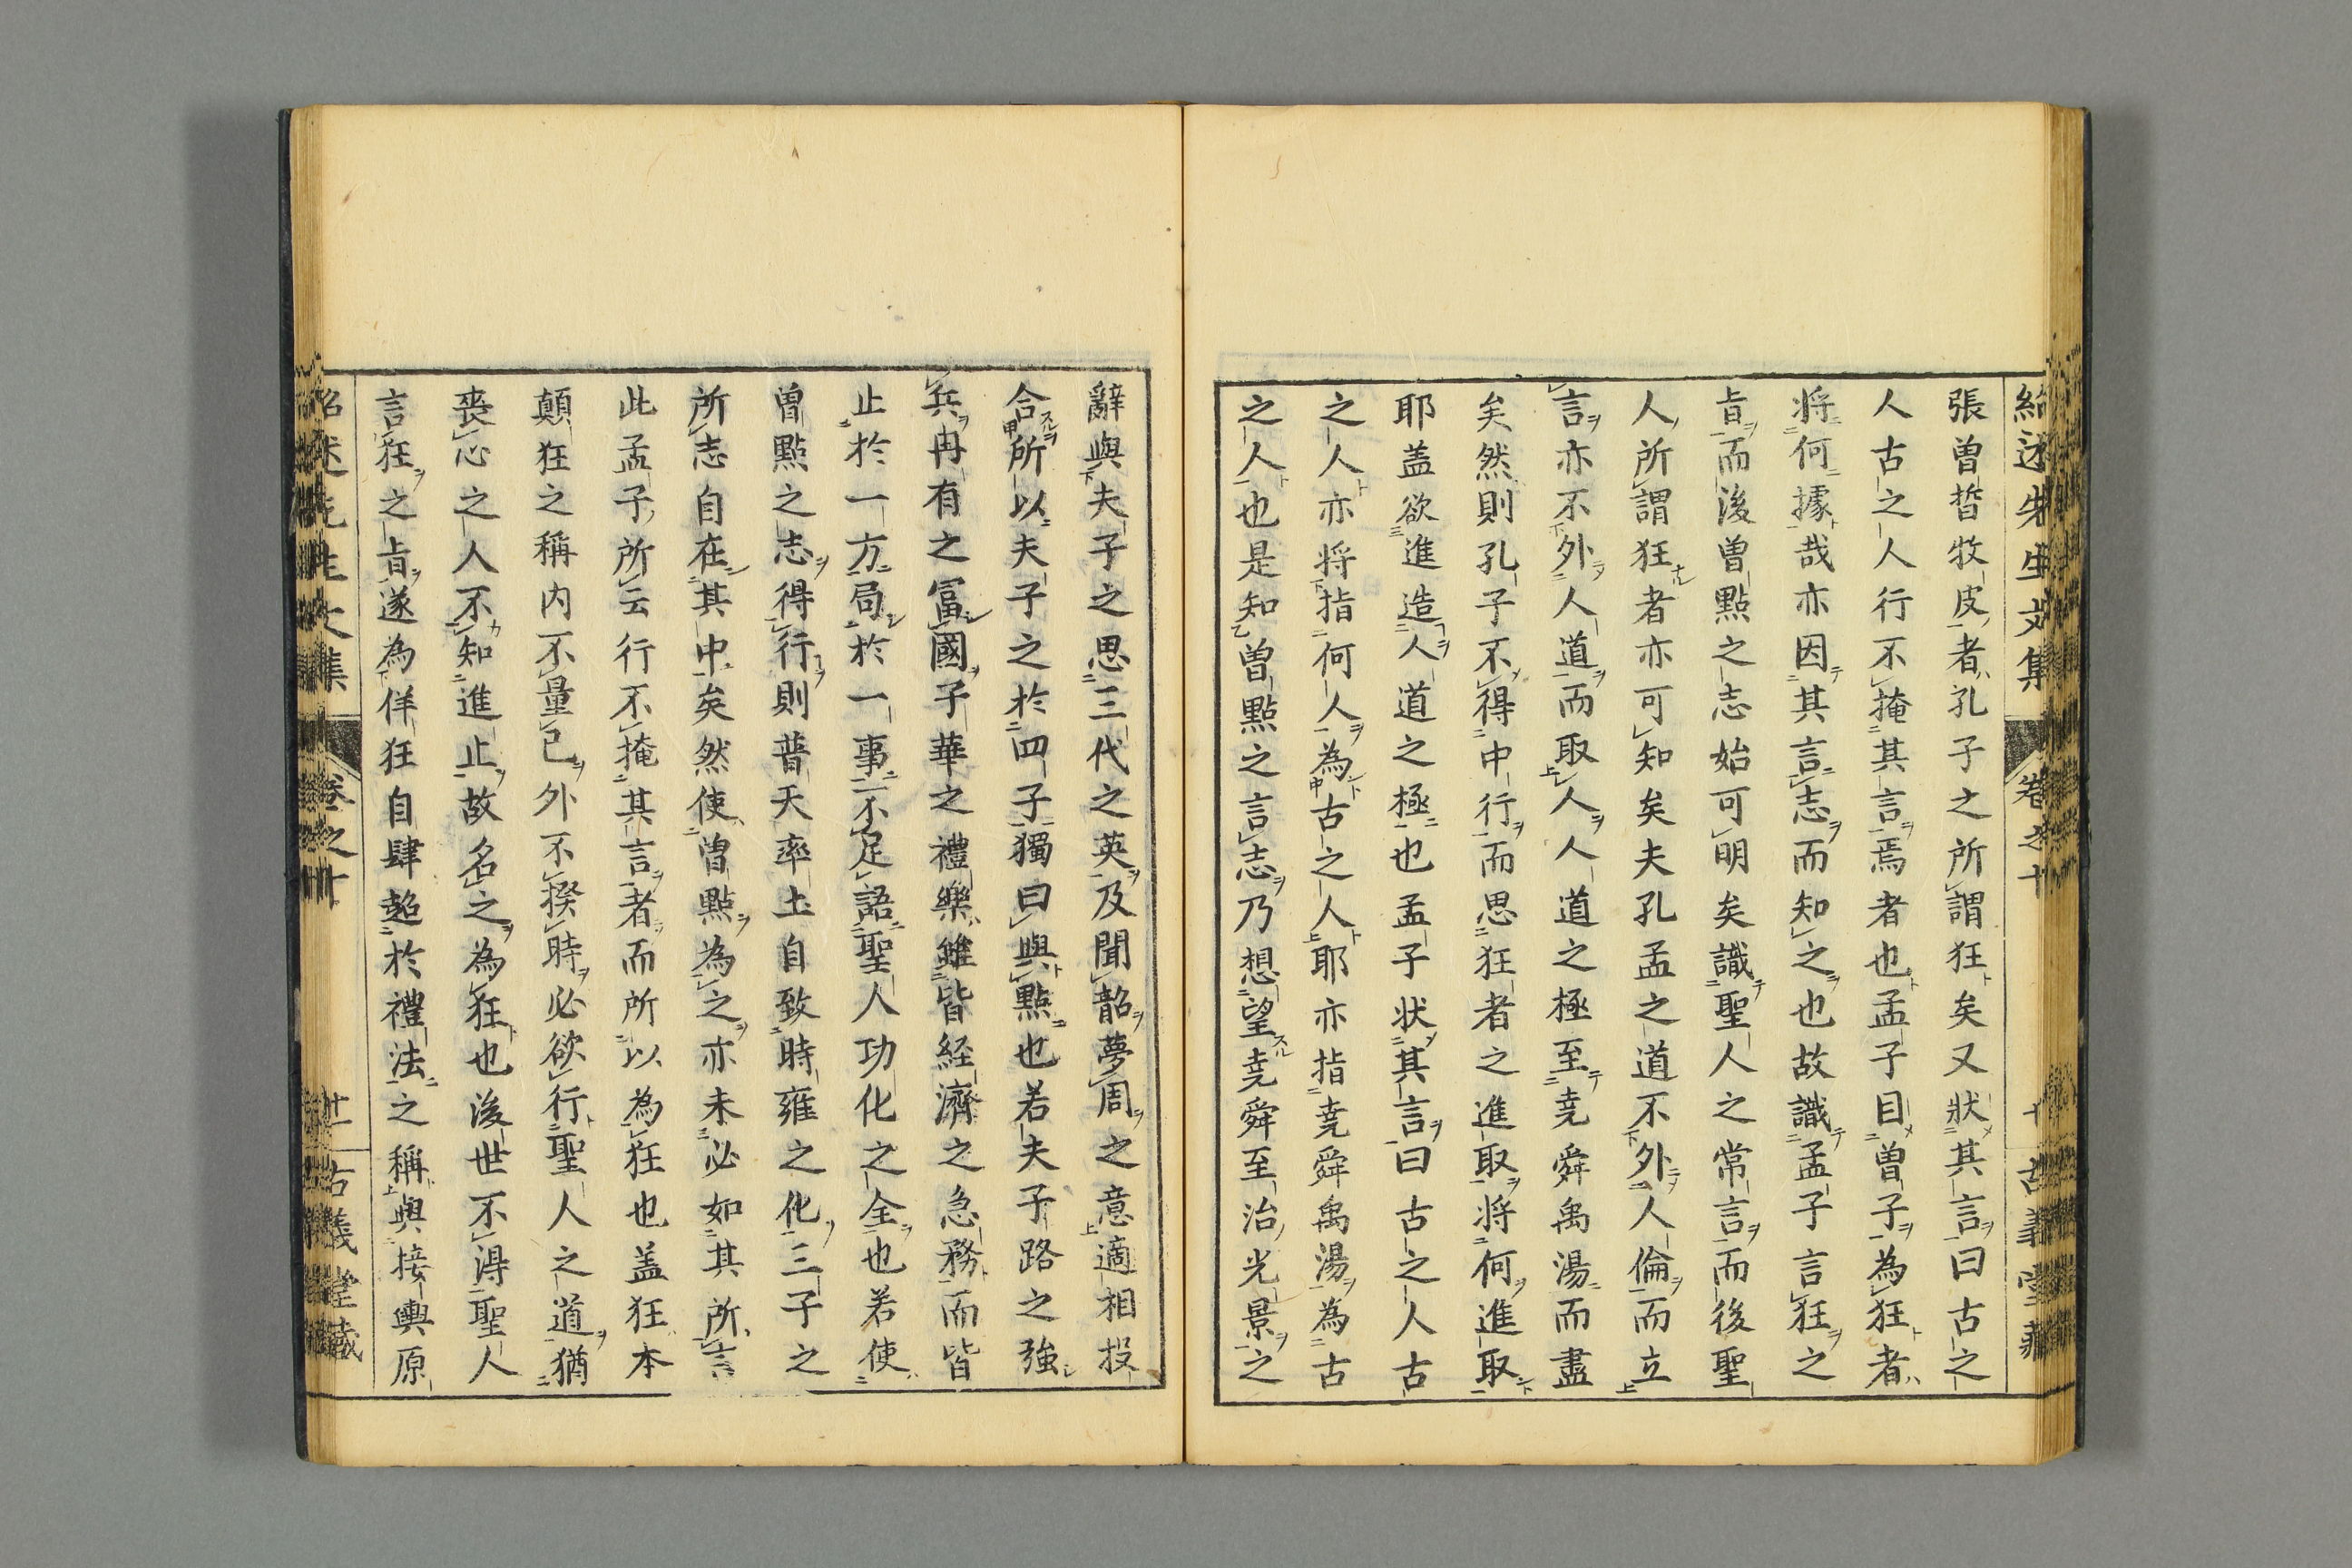 紹述先生文集 卷之十 十 古義堂藏
張曾晳牧皮者孔子之所謂狂矣又狀其言曰古之
人古之人行不掩其言焉者也孟子目曾子為狂者
将何據哉亦因其言志而知之也故識孟子言狂之
旨而後曾點之志始可明矣識聖人之常言而後聖
人所謂狂者亦可知矣夫孔孟之道不外人倫而立
言亦不外人道而取人人道之極至堯舜禹湯而盡
矣然則孔子不得中行而思狂者之進取将何進取
耶盖欲進造人道之極也孟子状其言曰古之人古
之人亦将指何人為古之人耶亦指堯舜禹湯為古
之人也是知曽點之言志乃想望堯舜至治光景之
辭與夫子之思三代之英及聞韶夢周之意適相投
合所以夫子之於四子獨曰與點也若夫子路之強
兵冉有之冨國子華之禮樂雖皆経濟之急務而皆
止於一方局於一事不足語聖人功化之全也若使
曽點之志得行則普天率土自致時雍之化三子之
所志自在其中矣然使曽點為之亦未必如其所言
此孟子所云行不掩其言者而所以為狂也盖狂本
顛狂之稱内不量己外不揆時必欲行聖人之道猶
喪心之人不知進止故名之為狂也後世不得聖人
言狂之旨遂為佯狂自肆超於禮法之稱與接輿原
紹述先生文集 卷之十 十一 古義堂藏